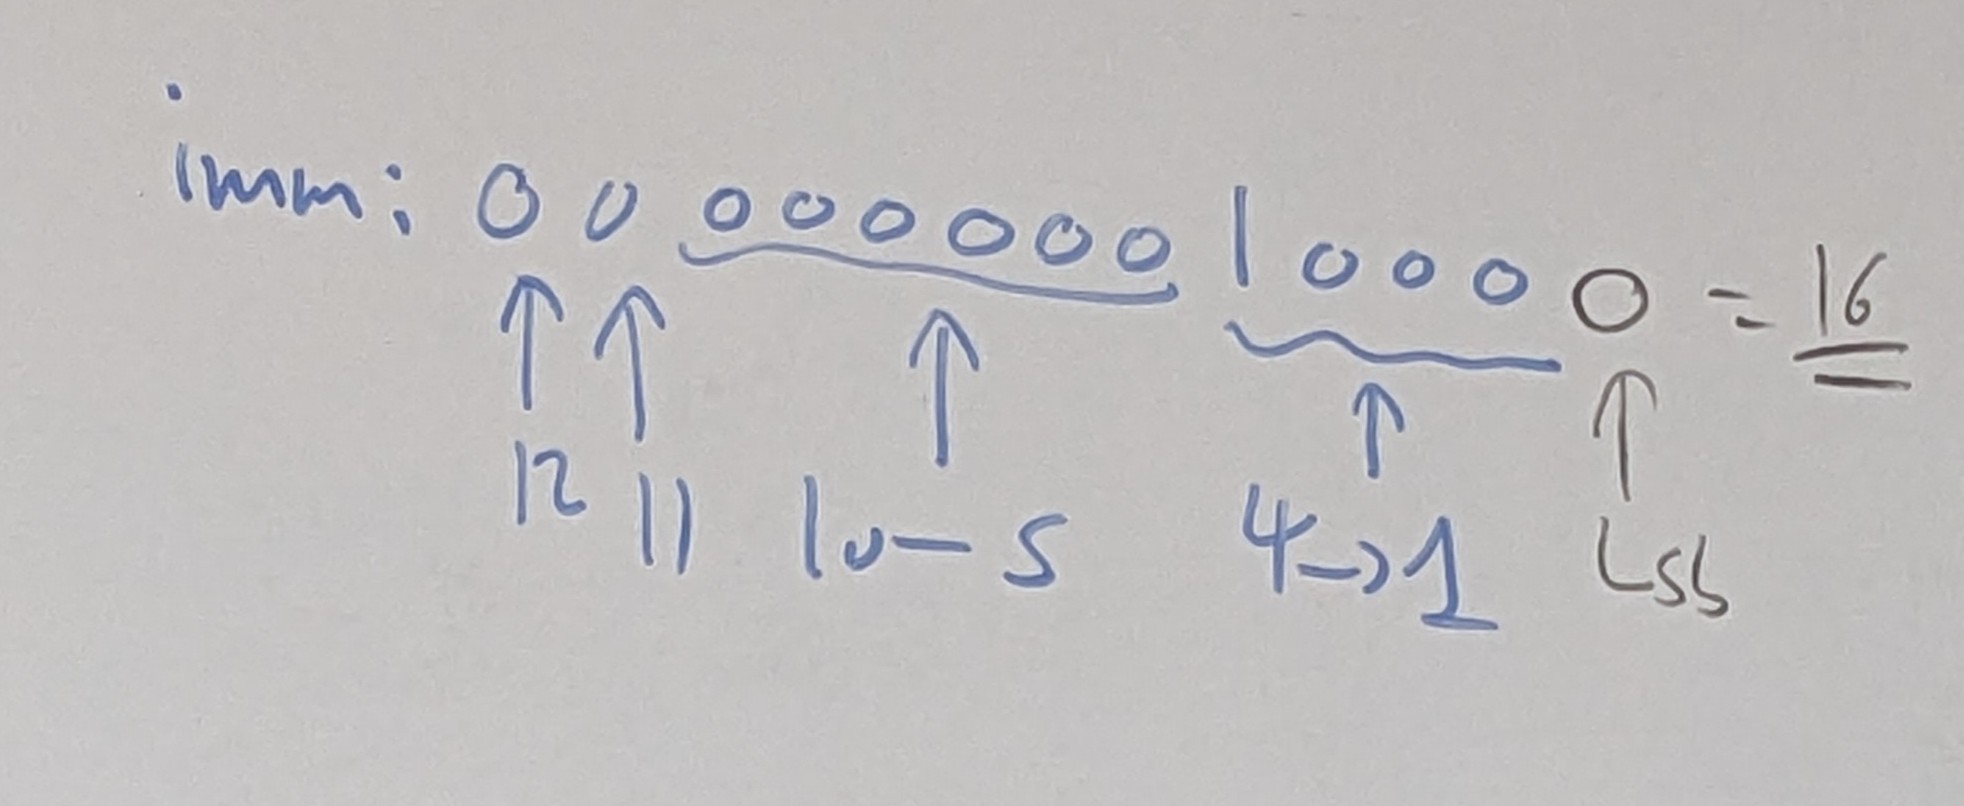 imm: 0 0 000000 1000 0 = 16
12 11 10-5 4->1 Lsb